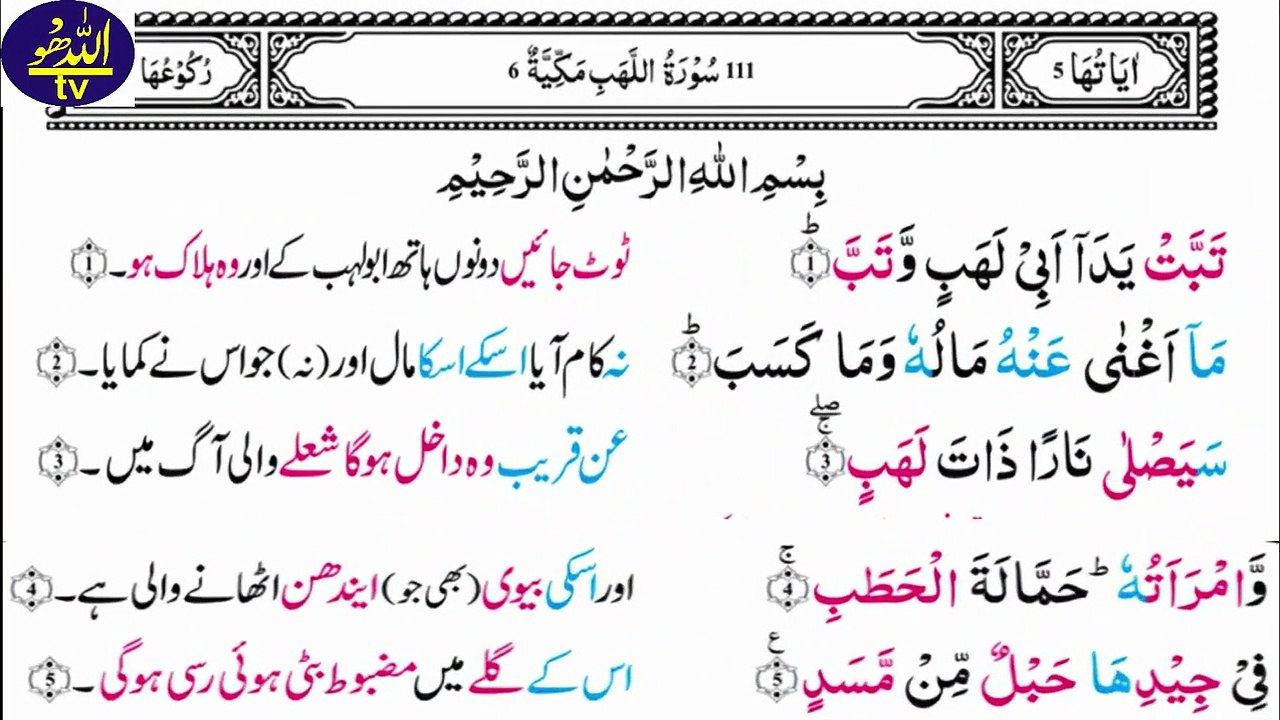 اللہ ھُو
tv
اٰیَاتُهَا 5
111 سُوْرَةُ اللَّهَبِ مَكِّيَّةٌ 6
رُكُوْعُهَا
بِسْمِ اللهِ الرَّحْمٰنِ الرَّحِيْمِ
تَبَّتْ يَدَآ اَبِيْ لَهَبٍ وَّتَبَّ ؕ 1
ٹوٹ جائیں دونوں ہاتھ ابولہب کے اور وہ ہلاک ہو۔ 1
مَآ اَغْنٰى عَنْهُ مَالُهٗ وَمَا كَسَبَ ؕ 2
نہ کام آیا اسکے اسکا مال اور (نہ) جو اس نے کمایا۔ 2
سَيَصْلٰى نَارًا ذَاتَ لَهَبٍ ۖۚ 3
عن قریب وہ داخل ہوگا شعلے والی آگ میں۔ 3
وَّامْرَاَتُهٗ ؕ حَمَّالَةَ الْحَطَبِ ۚ 4
اور اسکی بیوی (بھی جو) ایندھن اٹھانے والی ہے۔ 4
فِيْ جِيْدِهَا حَبْلٌ مِّنْ مَّسَدٍ ع 5
اس کے گلے میں مضبوط بٹی ہوئی رسی ہوگی۔ 5